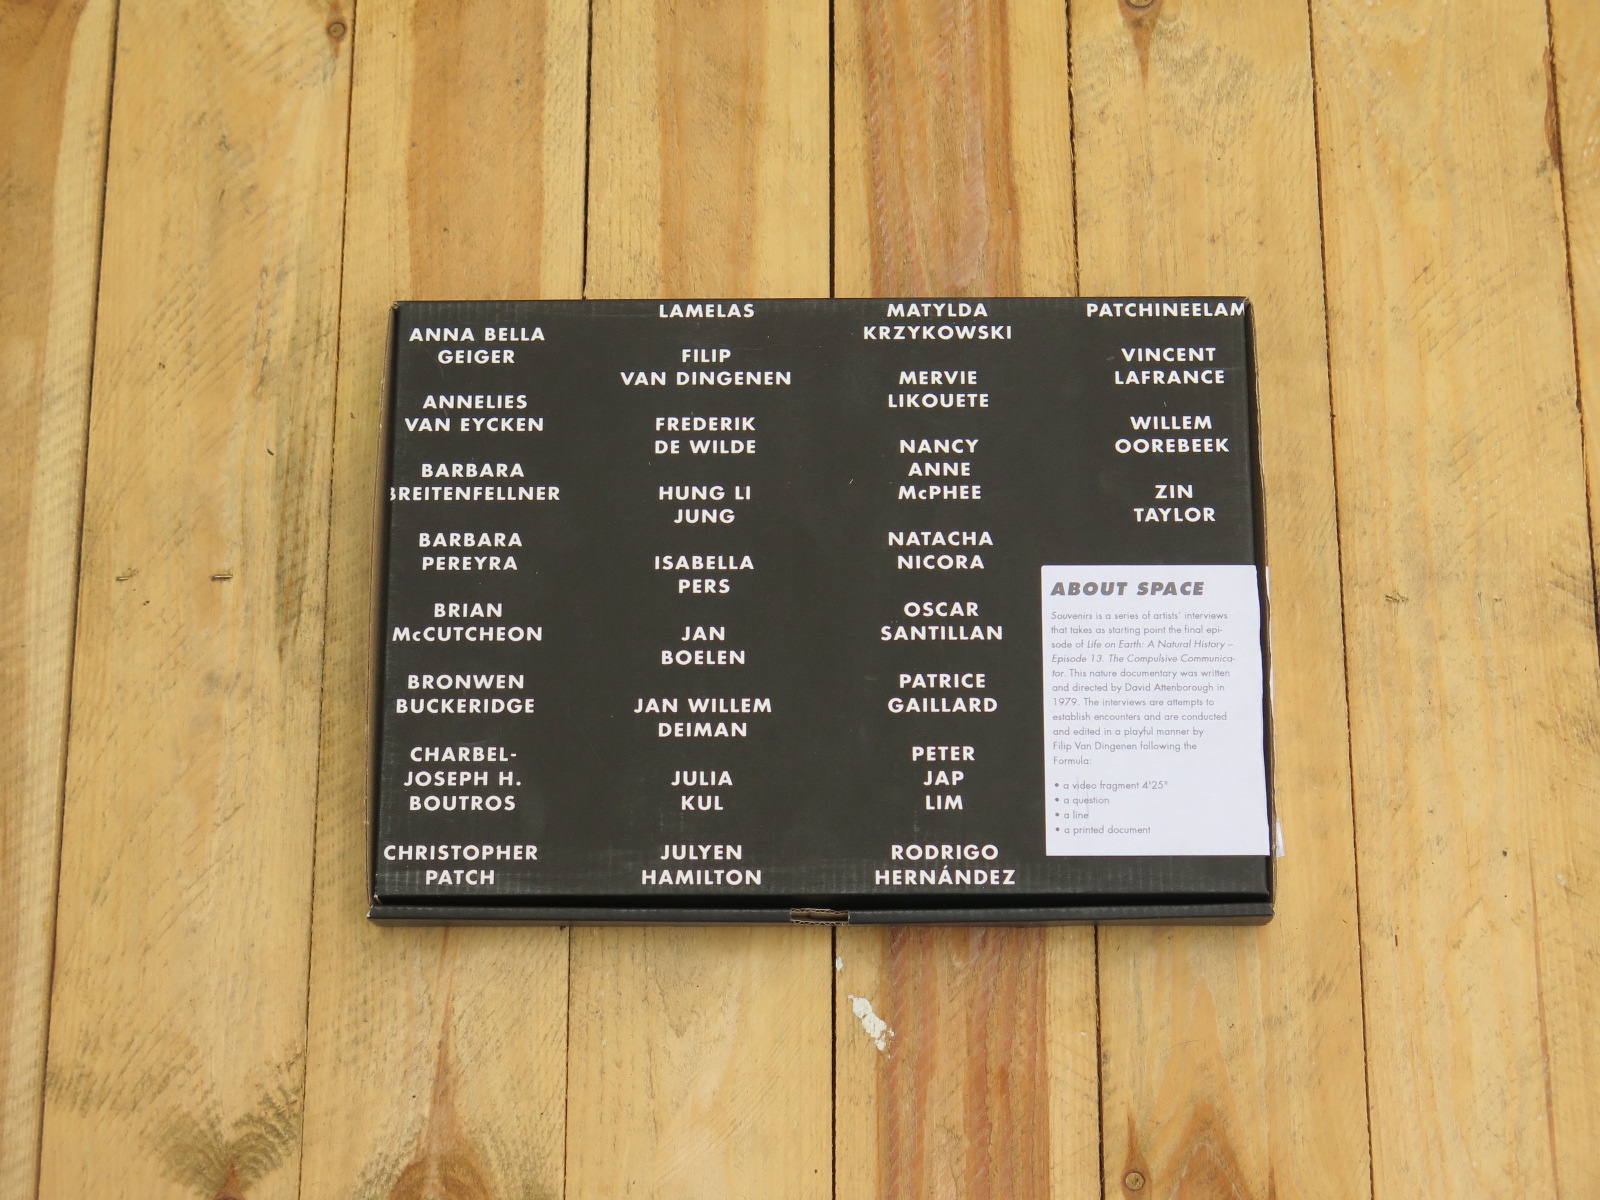 ANNA BELLA
GEIGER
ANNELIES
VAN EYCKEN
BARBARA
BREITENFELLNER
BARBARA
PEREYRA
BRIAN
McCUTCHEON
BRONWEN
BUCKERIDGE
CHARBEL-
JOSEPH H.
BOUTROS
CHRISTOPHER
PATCH
LAMELAS
FILIP
VAN DINGENEN
FREDERIK
DE WILDE
HUNG LI
JUNG
ISABELLA
PERS
JAN
BOELEN
JAN WILLEM
DEIMAN
JULIA
KUL
JULYEN
HAMILTON
MATYLDA
KRZYKOWSKI
MERVIE
LIKOUETE
NANCY
ANNE
McPHEE
NATACHA
NICORA
OSCAR
SANTILLAN
PATRICE
GAILLARD
PETER
JAP
LIM
RODRIGO
HERNÁNDEZ
PATCHINEELAM
VINCENT
LAFRANCE
WILLEM
OOREBEEK
ZIN
TAYLOR
ABOUT SPACE
Souvenirs is a series of artists' interviews
that takes as starting point the final epi-
sode of Life on Earth: A Natural History –
Episode 13. The Compulsive Communica-
tor. This nature documentary was written
and directed by David Attenborough in
1979. The interviews are attempts to
establish encounters and are conducted
and edited in a playful manner by
Filip Van Dingenen following the
Formula:
• a video fragment 4'25"
• a question
• a line
• a printed document